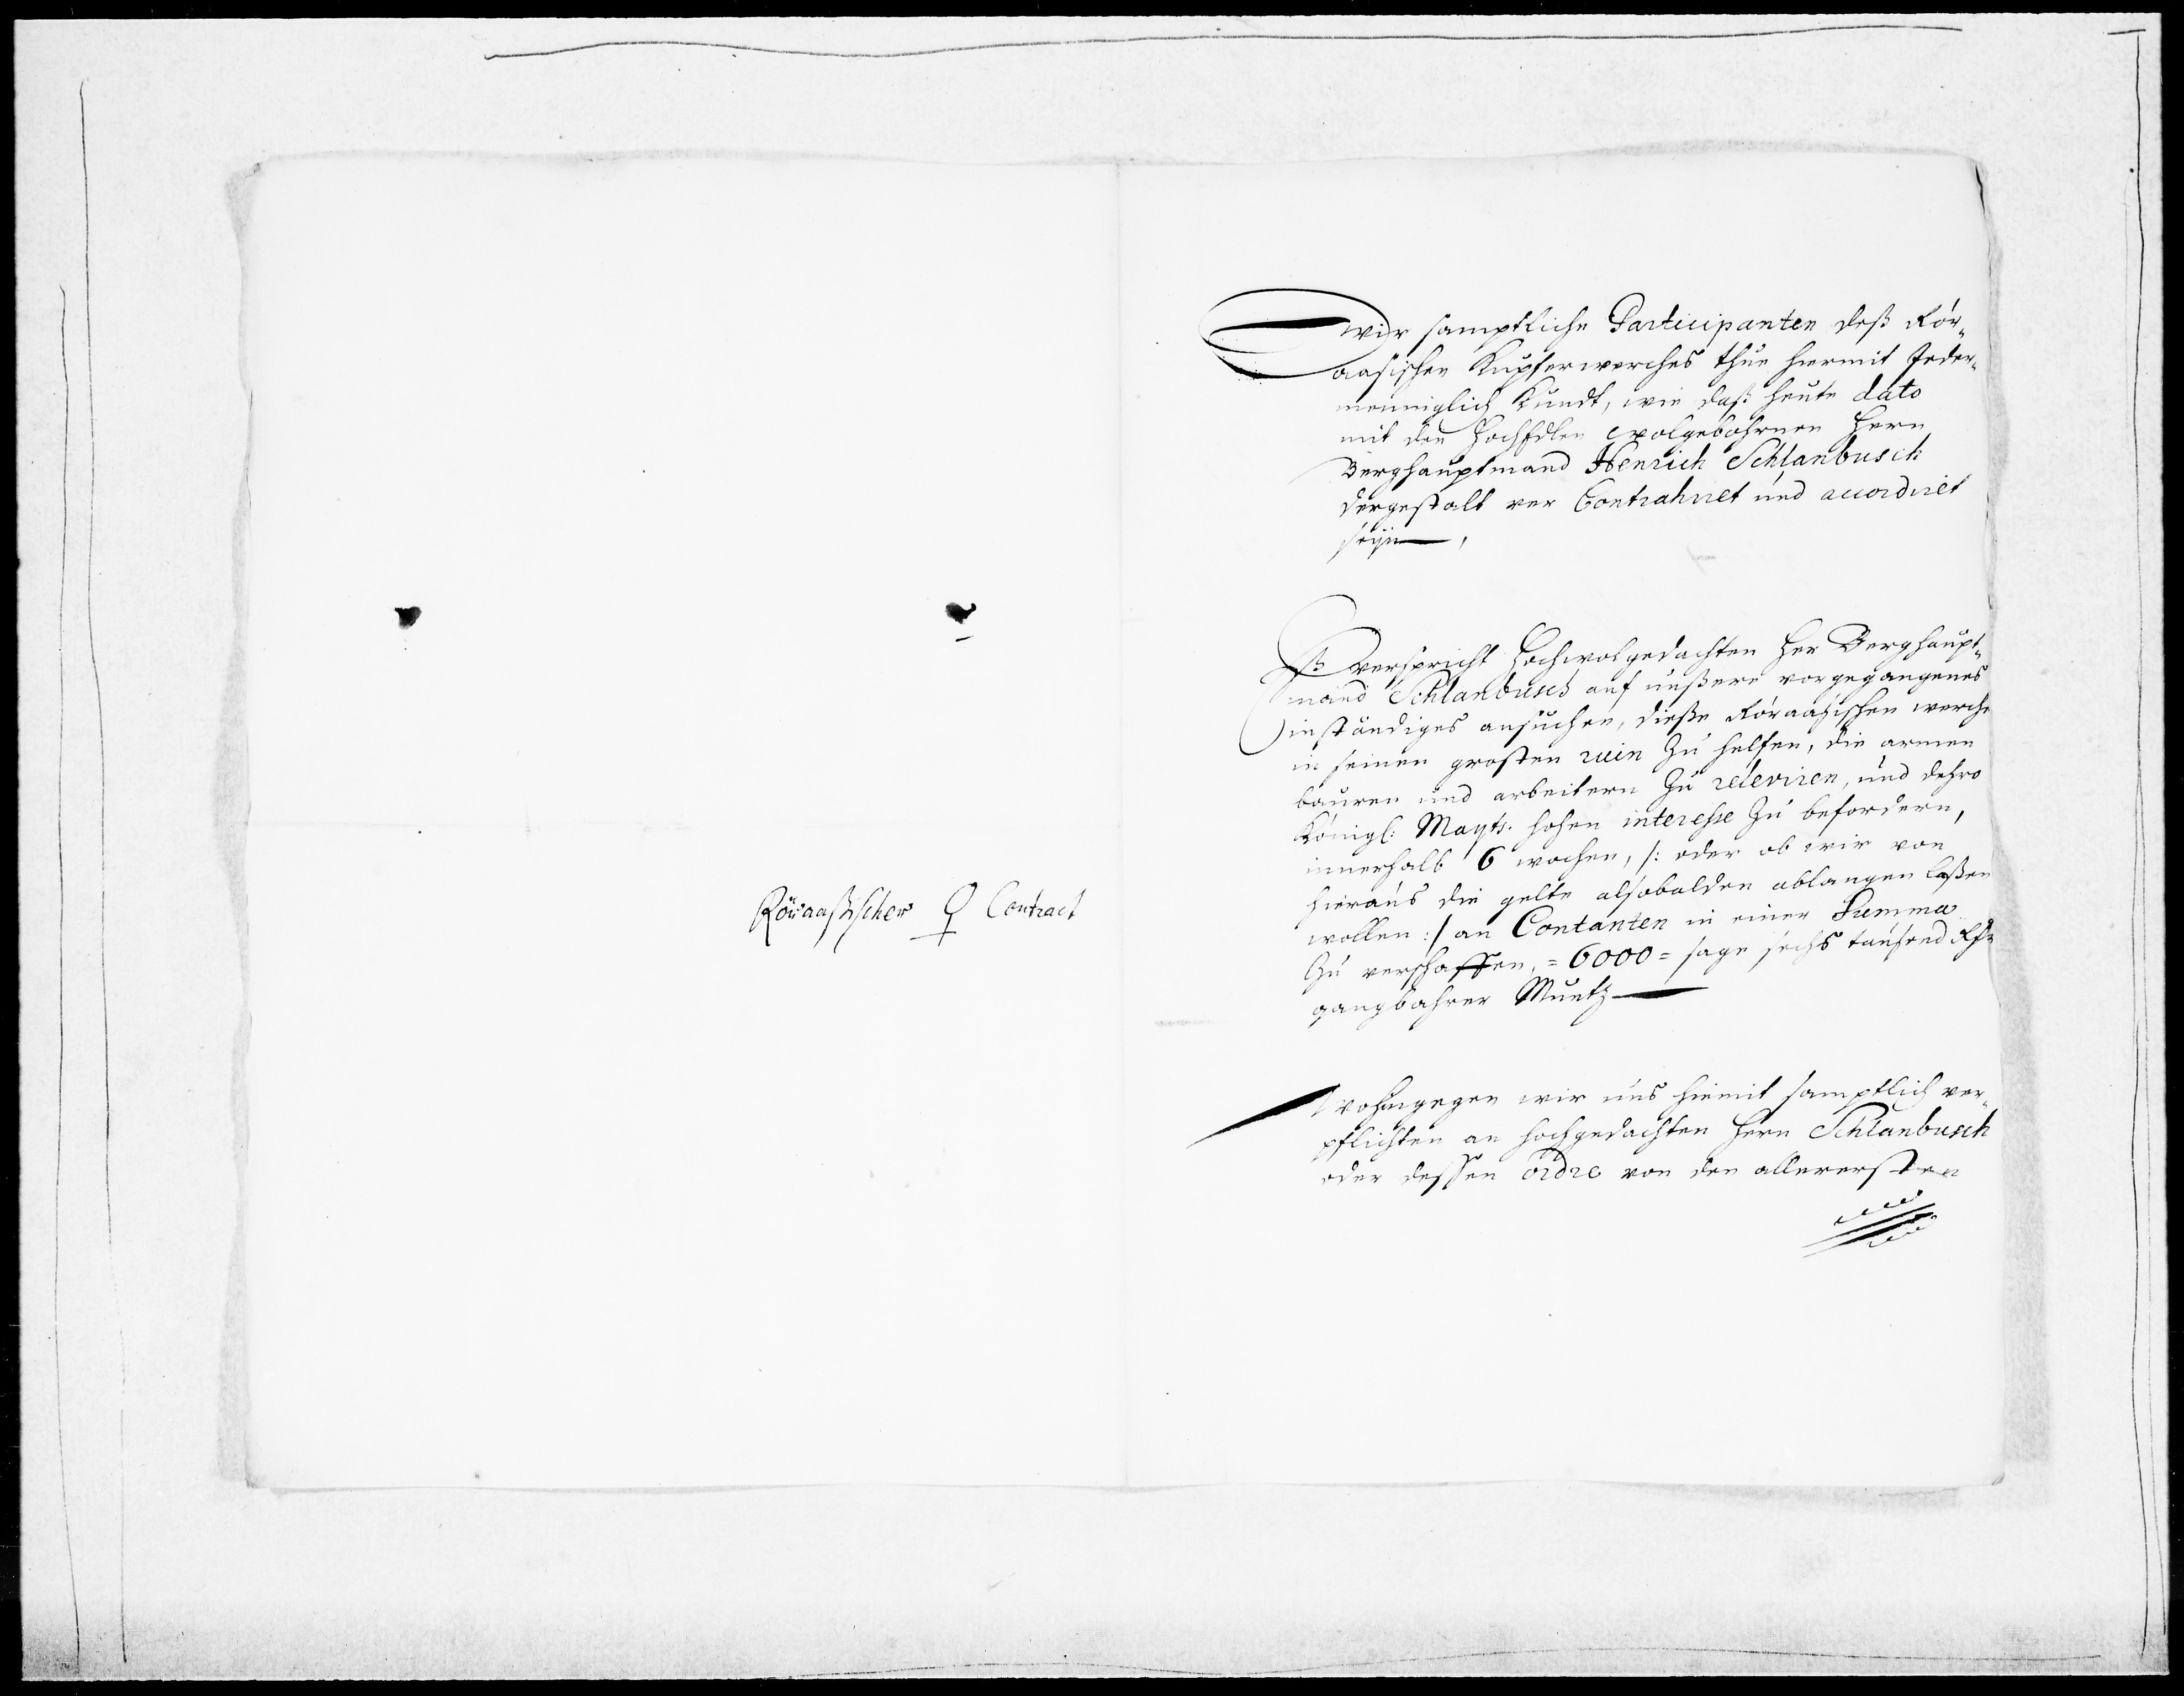 Röraaßischer ♀ Contract
Wir samptliche Participanten deß Rör„
aasischen Kupferwerches thue hiermit Jeder„
menniglich kundt, wie daß heute dato
mit den HochEdlen wolgebohrnen Herrn
Berghauptmand Henrich Schlanbusch
dergestalt ver Contrahiret und accordiret
seyn,
Eß verspricht Hochwolgedachten Her Berghaupt„
mand Schlanbusch auf unßere vorgegangenes
inständiges ansuchen, dieße Röraasischen werche
in seinen grosten ruin zu helfen, die armen
bauren und arbeitern zu releviren, und dehro
Königl: Mayts. hohen interesse zu befordern,
innerhalb 6 wochen, /: oder ob wir von
hieraus die gelte alsobalden ablangen laßen
wollen :/ an Contanten in einer Summa
zu verschaffen, = 6000 = sage sechs tausend Rhr
gangbahrer Muntz
Wohingegen wir uns hiemit samptlich ver„
pflichten an hochgedachten Herrn Schlanbusch
oder dessen ordre von den allerersten